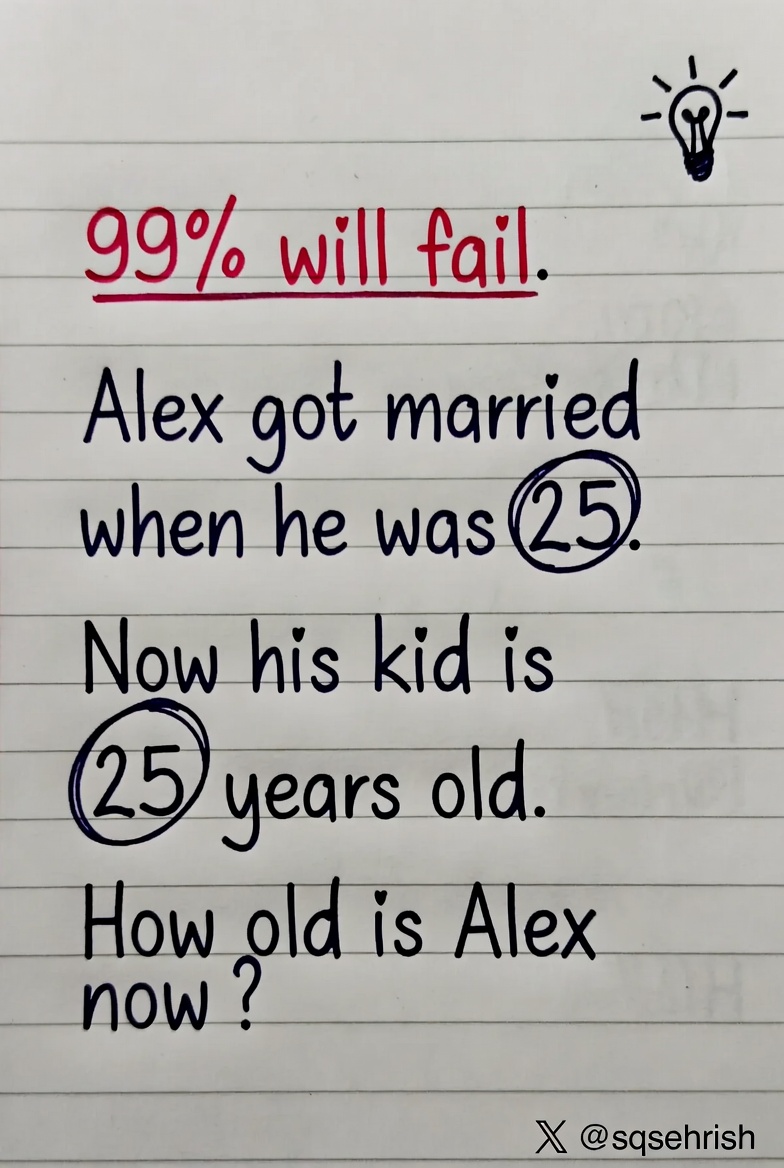 99% will fail.
Alex got married
when he was 25.
Now his kid is
25 years old.
How old is Alex
now ?
X @sqsehrish